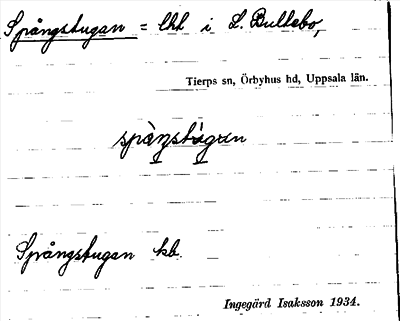 Spångstugan = lht i L. Bullsbo,
Tierps sn, Örbyhus hd, Uppsala län.
spångstugan
Spångstugan kb.
Ingegärd Isaksson 1934.